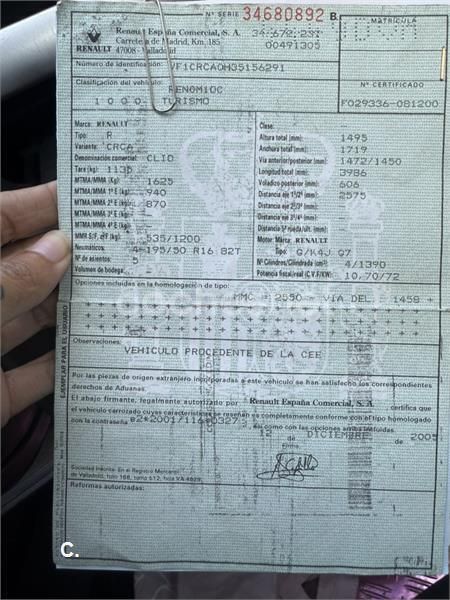 Nº SERIE 34680892 B.
MATRICULA
RENAULT
Renault España Comercial, S. A.
Carretera de Madrid, Km. 185
47008 - Valladolid
34.672.231
00491305
Número de identificación:
VF1CRCA0H35156291
Clasificación del vehículo:
RENOM1OC
1000 TURISMO
Nº CERTIFICADO
F029336-081200
Marca: RENAULT
Tipo: R
Variante: CRCA
Denominación comercial: CLIO
Tara (kg): 1135
MTMA/MMA (kg): 1625
MTMA/MMA 1º E (kg): 940
MTMA/MMA 2º E (kg): 870
MTMA/MMA 3º E (kg): -
MTMA/MMA 4º E (kg): -
MMR S/F, c/F (kg): 535/1200
Neumáticos: 4-195/50 R16 82T
Nº de asientos: 5
Volumen de bodega: -
Clase:
Altura total (mm): 1495
Anchura total (mm): 1719
Vía anterior/posterior (mm): 1472/1450
Longitud total (mm): 3986
Voladizo posterior (mm): 606
Distancia eje 1º/2º (mm): 2575
Distancia eje 2º/3º (mm): -
Distancia eje 3º/4º (mm): -
Distancia 5ª rueda/últ. (mm): -
Motor: Marca: RENAULT
Tipo: G/K4J G7
Nº Cilindros/Cilindrada (cm³): 4/1390
Potencia fiscal/real (C.V.F/KW): 10,70/72
Opciones incluidas en la homologación de tipo:
MMC = 2550 - VIA DEL: 1458 +
Observaciones:
VEHICULO PROCEDENTE DE LA CEE
EJEMPLAR PARA EL USUARIO
Por las piezas de origen extranjero incorporadas a este vehículo se han satisfecho los correspondientes
derechos de Aduanas.
El abajo firmante, legalmente autorizado por Renault España Comercial, S.A. certifica que
el vehículo carrozado cuyas características se reseñan es completamente conforme con el tipo homologado
con la contraseña e2*2001/116*0327 así como con las opciones arriba incluidas.
12 DICIEMBRE de 2005
Firma
Sociedad Inscrita: En el Registro Mercantil
de Valladolid, folio 168, tomo 612, hoja VA 4829.
Reformas autorizadas:
C.